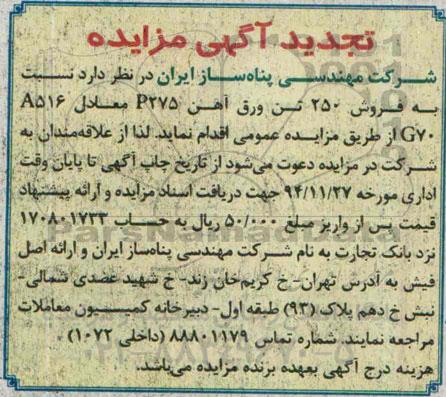 تجدید آگهی مزایده
شرکت مهندسی پناه‌ساز ایران در نظر دارد نسبت
به فروش ۲۵۰ تن ورق آهن P۲۷۵ معادل A۵۱۶
G۷۰ از طریق مزایده عمومی اقدام نماید. لذا از علاقه‌مندان به
شرکت در مزایده دعوت می‌شود از تاریخ چاپ آگهی تا پایان وقت
اداری مورخه ۹۴/۱۱/۲۷ جهت دریافت اسناد مزایده و ارائه پیشنهاد
قیمت پس از واریز مبلغ ۵۰/۰۰۰ ریال به حساب ۱۷۰۸۰۱۷۳۳
نزد بانک تجارت به نام شرکت مهندسی پناه‌ساز ایران و ارائه اصل
فیش به آدرس تهران- خ کریم‌خان زند- خ شهید عضدی شمالی-
نبش خ دهم پلاک (۹۳) طبقه اول- دبیرخانه کمیسیون معاملات
مراجعه نمایند. شماره تماس ۸۸۸۰۱۱۷۹ (داخلی ۱۰۷۲).
هزینه درج آگهی بعهده برنده مزایده می‌باشد.